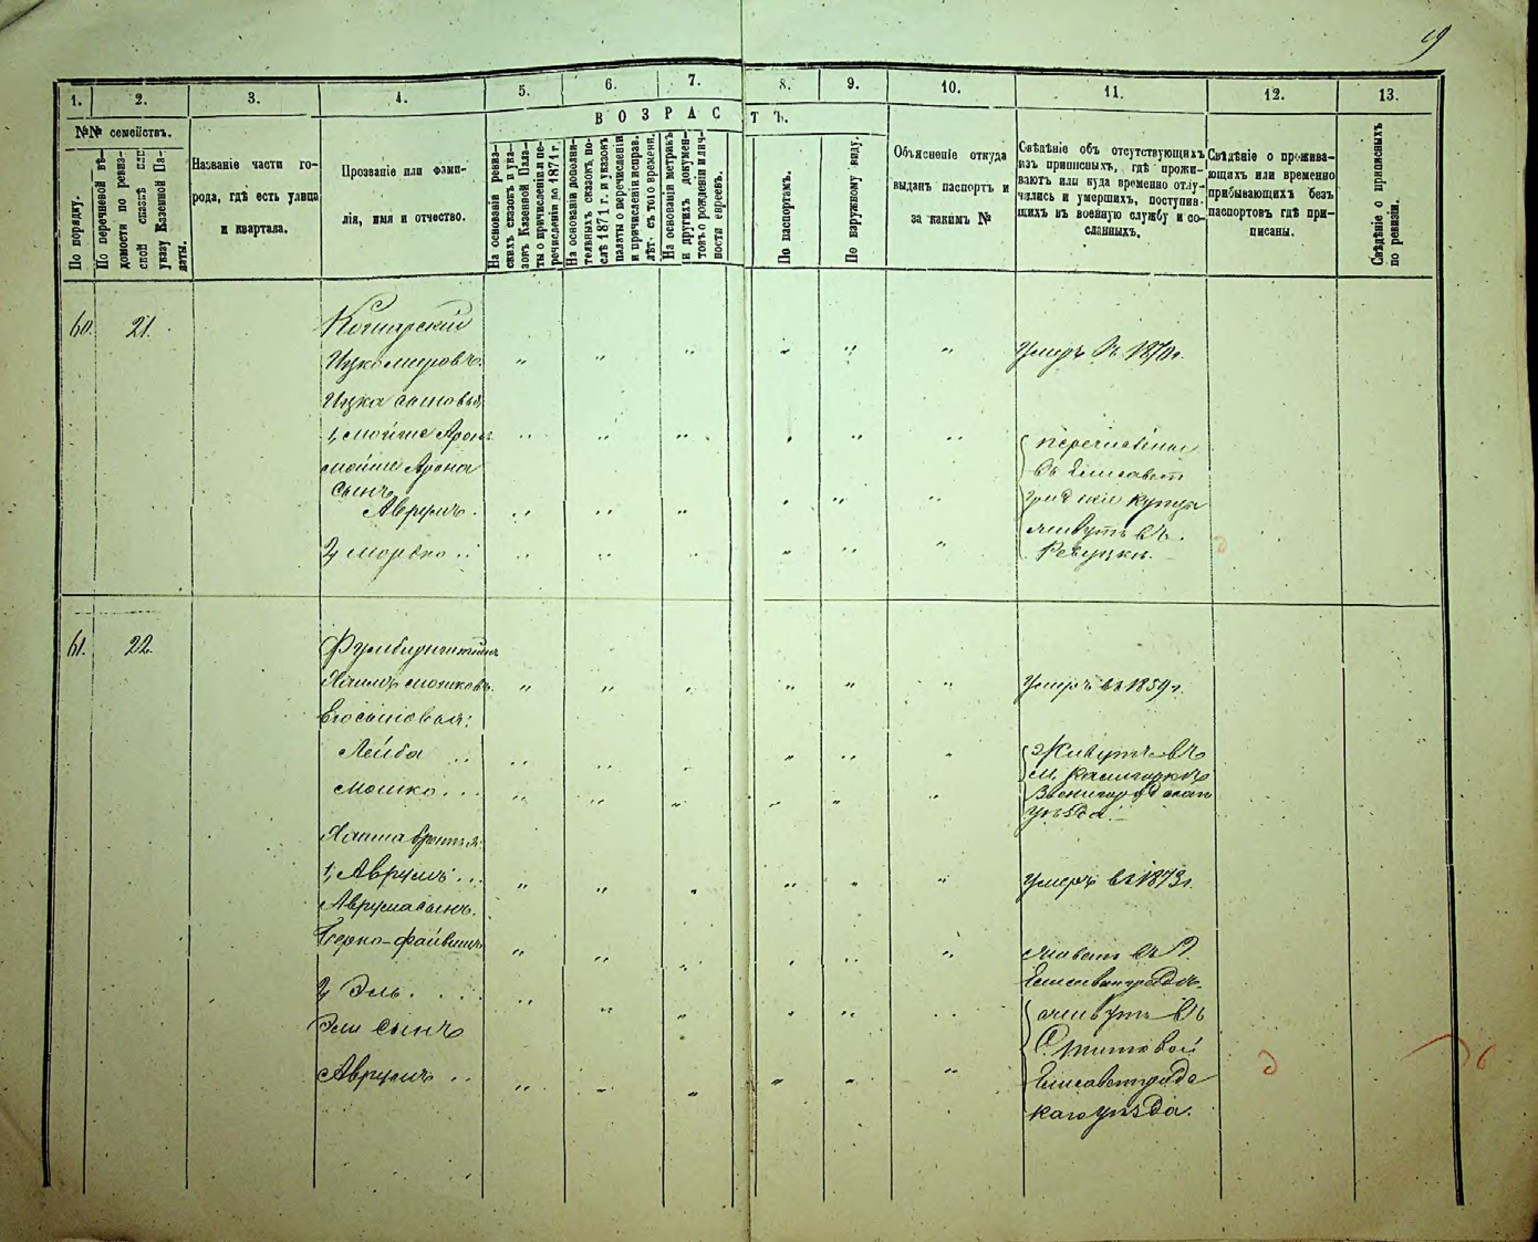 19
1. 2. 3. 4. 5. 6. 7. 8. 9. 10. 11. 12. 13.
№№ семействъ.
По порядку.
По перечневой вѣ-
домости по ревиз-
ской сказкѣ или
указу Казенной Па-
латы.
Названіе части го-
рода, гдѣ есть улица
и квартала.
Прозваніе или фами-
лія, имя и отчество.
ВОЗРАСТЪ.
На основаніи ревиз-
скихъ сказокъ и ука-
зовъ Казенной Пала-
ты о причисленіи и пе-
речисленіи до 1871 г.
На основаніи дополни-
тельныхъ сказокъ, по-
слѣ 1871 г. и указовъ
палаты о перечисленіи
и причисленіи исправ.
лѣт. съ того времени.
На основаніи метрикъ
и другихъ докумен-
товъ о рожденіи и лич-
ности евреевъ.
По паспортамъ.
По наружному виду.
Объясненіе откуда
выданъ паспортъ и
за какимъ №
Свѣдѣніе объ отсутствующихъ
изъ приписныхъ, гдѣ прожи-
ваютъ или куда временно отлу-
чались и умершихъ, поступив-
щихъ въ военную службу и со-
сланныхъ.
Свѣдѣніе о прожива-
ющихъ или временно
прибывающихъ безъ
паспортовъ гдѣ при-
писаны.
Свѣдѣніе о приписныхъ
по ревизіи.
60. 21. Кошарскій
Ицко Мееровъ. " " " " " " Умеръ въ 1870 г.
Ицка сыновья
1, Мойше Аронъ " " " " " " перечислены
Мойше Арона въ Елисавет
сынъ
Аврумъ. " " " " " " градскіе купцы
живутъ въ
2, Мордко " " " " " " Ревуцки.
61. 22.
Хаимъ Мошковъ. " " " " " " Умеръ въ 1859 г.
Его сыновья:
Лейба " " " " " " Живутъ въ
м. Калигоркѣ
Мошко " " " " " " Звенигородскаго
уѣзда.
Хаима братья
1, Аврумъ " " " " " " Умеръ въ 1873 г.
Аврума сынъ.
Берко-Файвишъ " " " " " " Живетъ въ г.
Елисаветградѣ.
2, Эль " " " " " " живутъ въ
Эли сынъ С.
Аврумъ " " " " " " Елисаветградс
каго уѣзда.